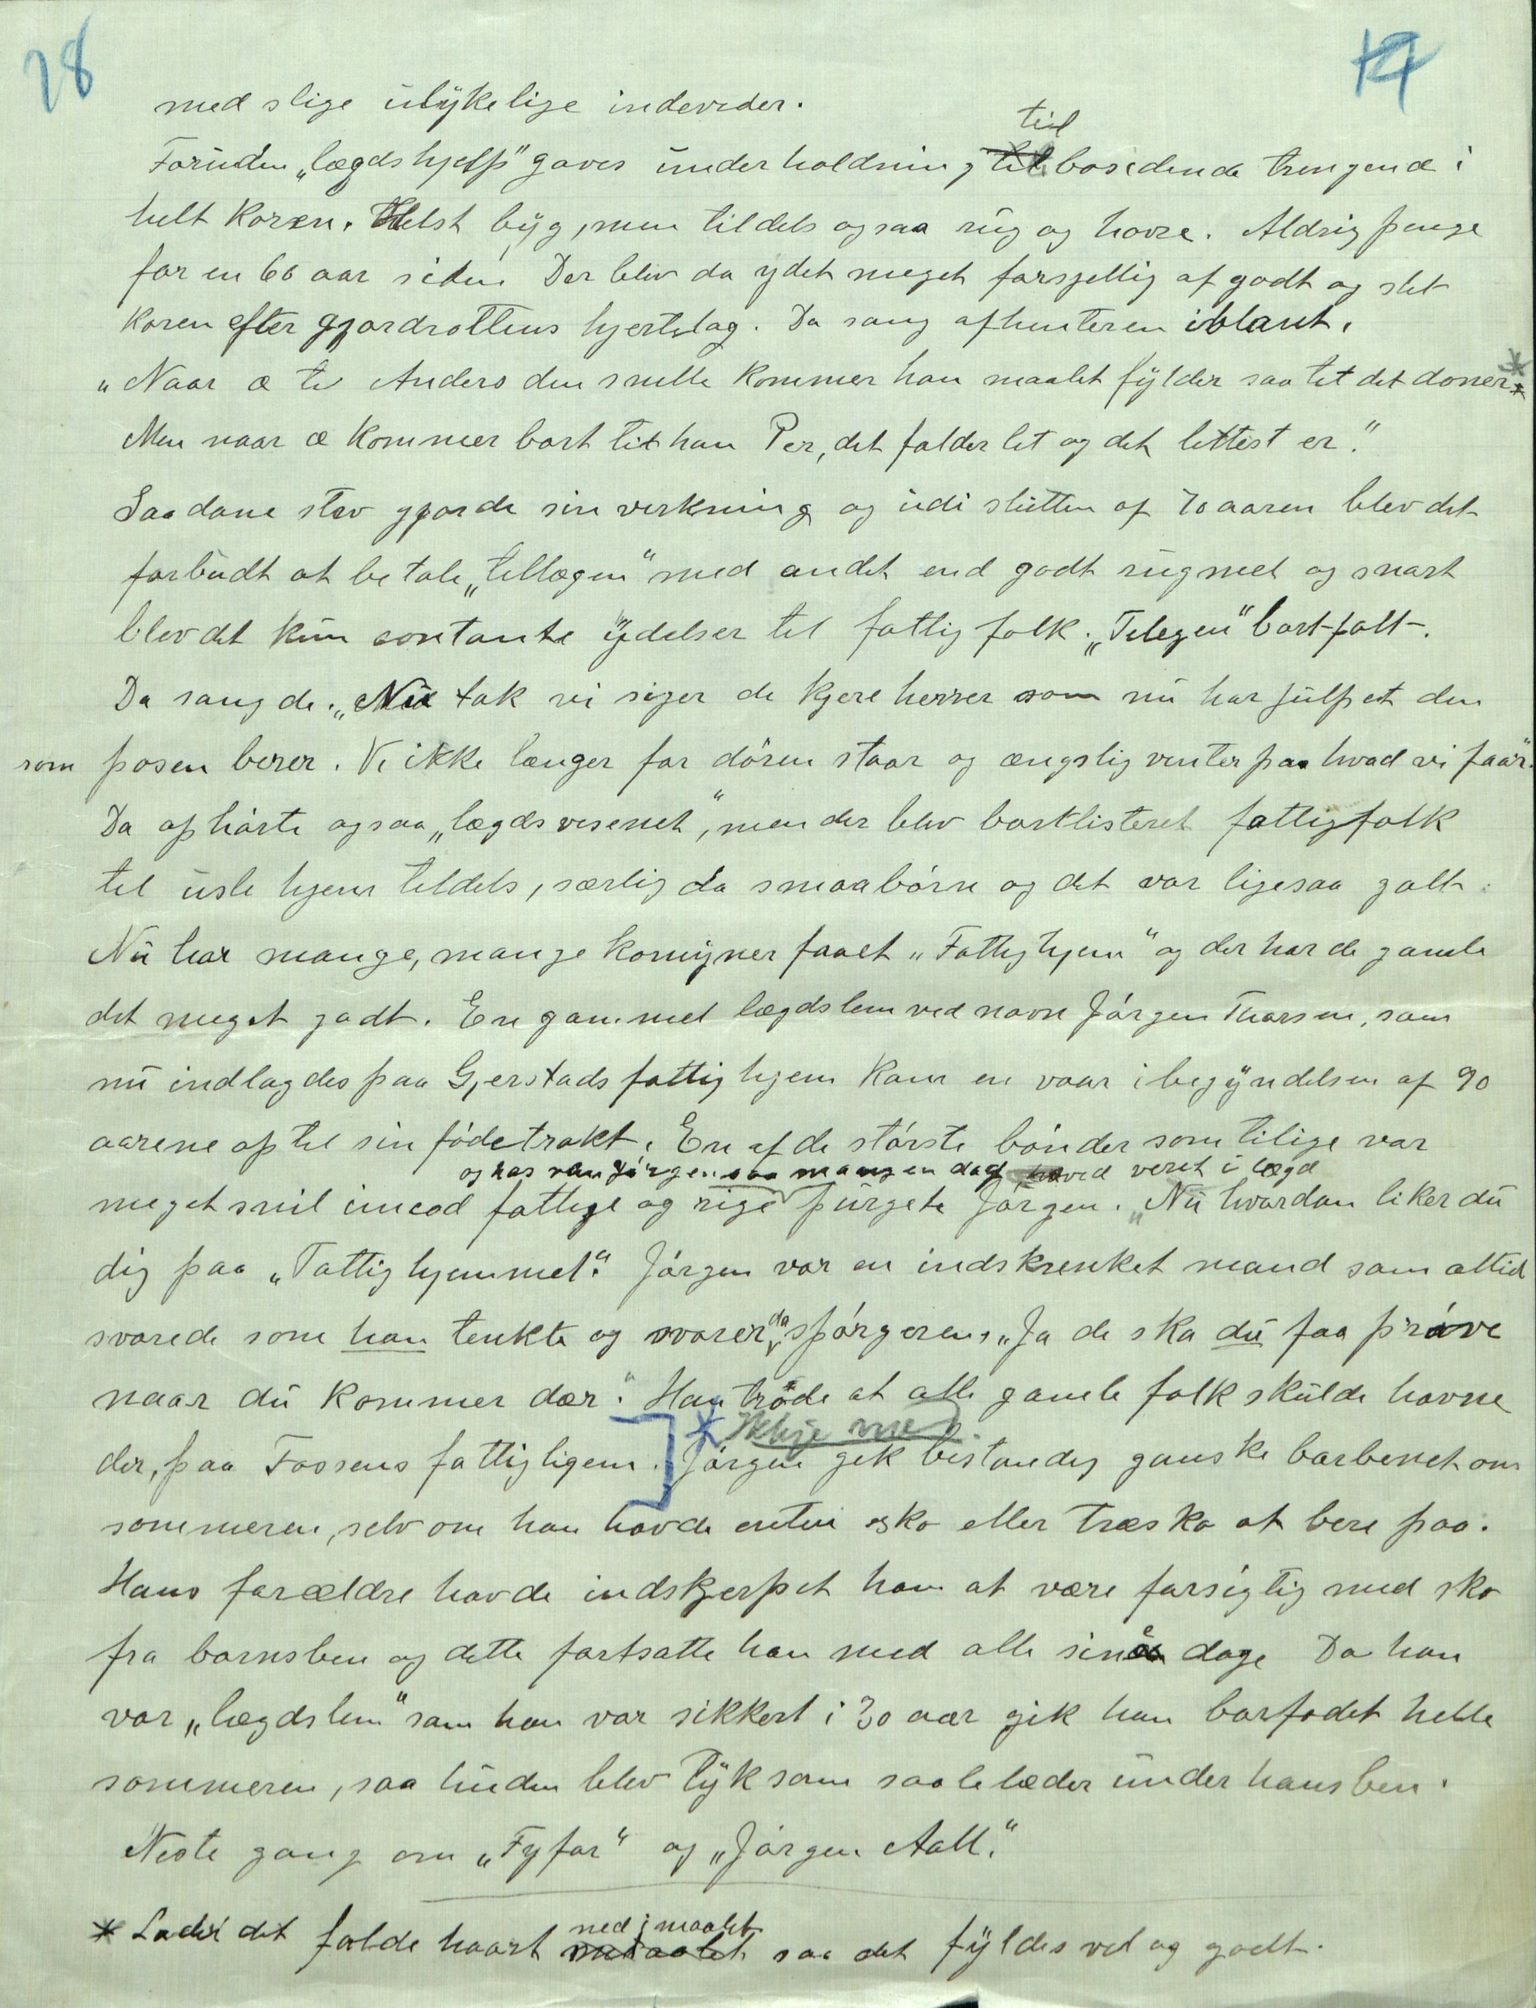 28
med slige ulykelige indevider.
til
Foruden „lægdshjelp" gaves underholdning til bosidende trengende i
helt koren. Helst byg, men tildels ogsaa rug og havre. Aldrig penge
for en 60 aar siden Der blev da ydet meget forsjellig af godt og slet
koren efter gjordrottens hjertelag. Da sang afhenteren iblant.
„Naar æ te Anders den snille kommer han maalet fylder saa tet det doner *
Men naar æ kommer bort til han Per, det falder let og det lettest er."
Saadane stev gjorde sin verkning og udi slutten af 70 aaren blev det
forbudt at betale „tellægen" med andet end godt rugmel og snart
blev det kun contante ydelser til fattigfolk. „Telegen" bortfalt.
Da sang de. „Nu tak vi siger de kjere herrer som nu har julpet den
som posen berer. Vi ikke længer for døren staar og ængslig venter paa hvad vi faar".
Da ophørte ogsaa „lægdsvesenet", men der blev bortlisteret fattigfolk
til usle hjem tildels, særlig da smaabørn og det var ligesaa galt.
Nu har mange, mange komuner faaet „Fattighjem" og der har de gamle
det meget godt. En gammel lægdslem ved navn Jørgen Thorsen, som
nu indlagdes paa Gjerstads fattighjem kom en vaar i begyndelsen af 90
aarene op til sin fødetrakt. En af de største bønder som tilige var
og hos van Jørgen saa mangen dag havd veret i lægd
meget snil imod fattige og rige spurgete Jørgen. „Nu hvordan liker du
dig paa „Fattighjemmet". Jørgen var en indskrenket mand som altid
svarede som han tenkte og svarer da spørgeren, „Ja de ska du faa prøve
naar du kommer dær." Han trode at alle gamle folk skulde havne
* Ikkje med.
der, paa Fossens fattighjem. Jørgen gik bestandig ganske barbenet om
sommeren, selv om han havde enten sko eller træsko at bere paa.
Hans forældre havde indskjerpet ham at være forsigtig med sko
fra barnsben og dette fortsatte han med alle sine dage Da han
var „lægdslem" som han var sikkert i 30 aar gik han barfodet hele
sommeren, saa huden blev tyk som saalelæder under hans ben.
Neste gang om „Fyfar" og „Jørgen Aall."
* Lader det falde haart ned i maalet saa det fyldes vel og godt.